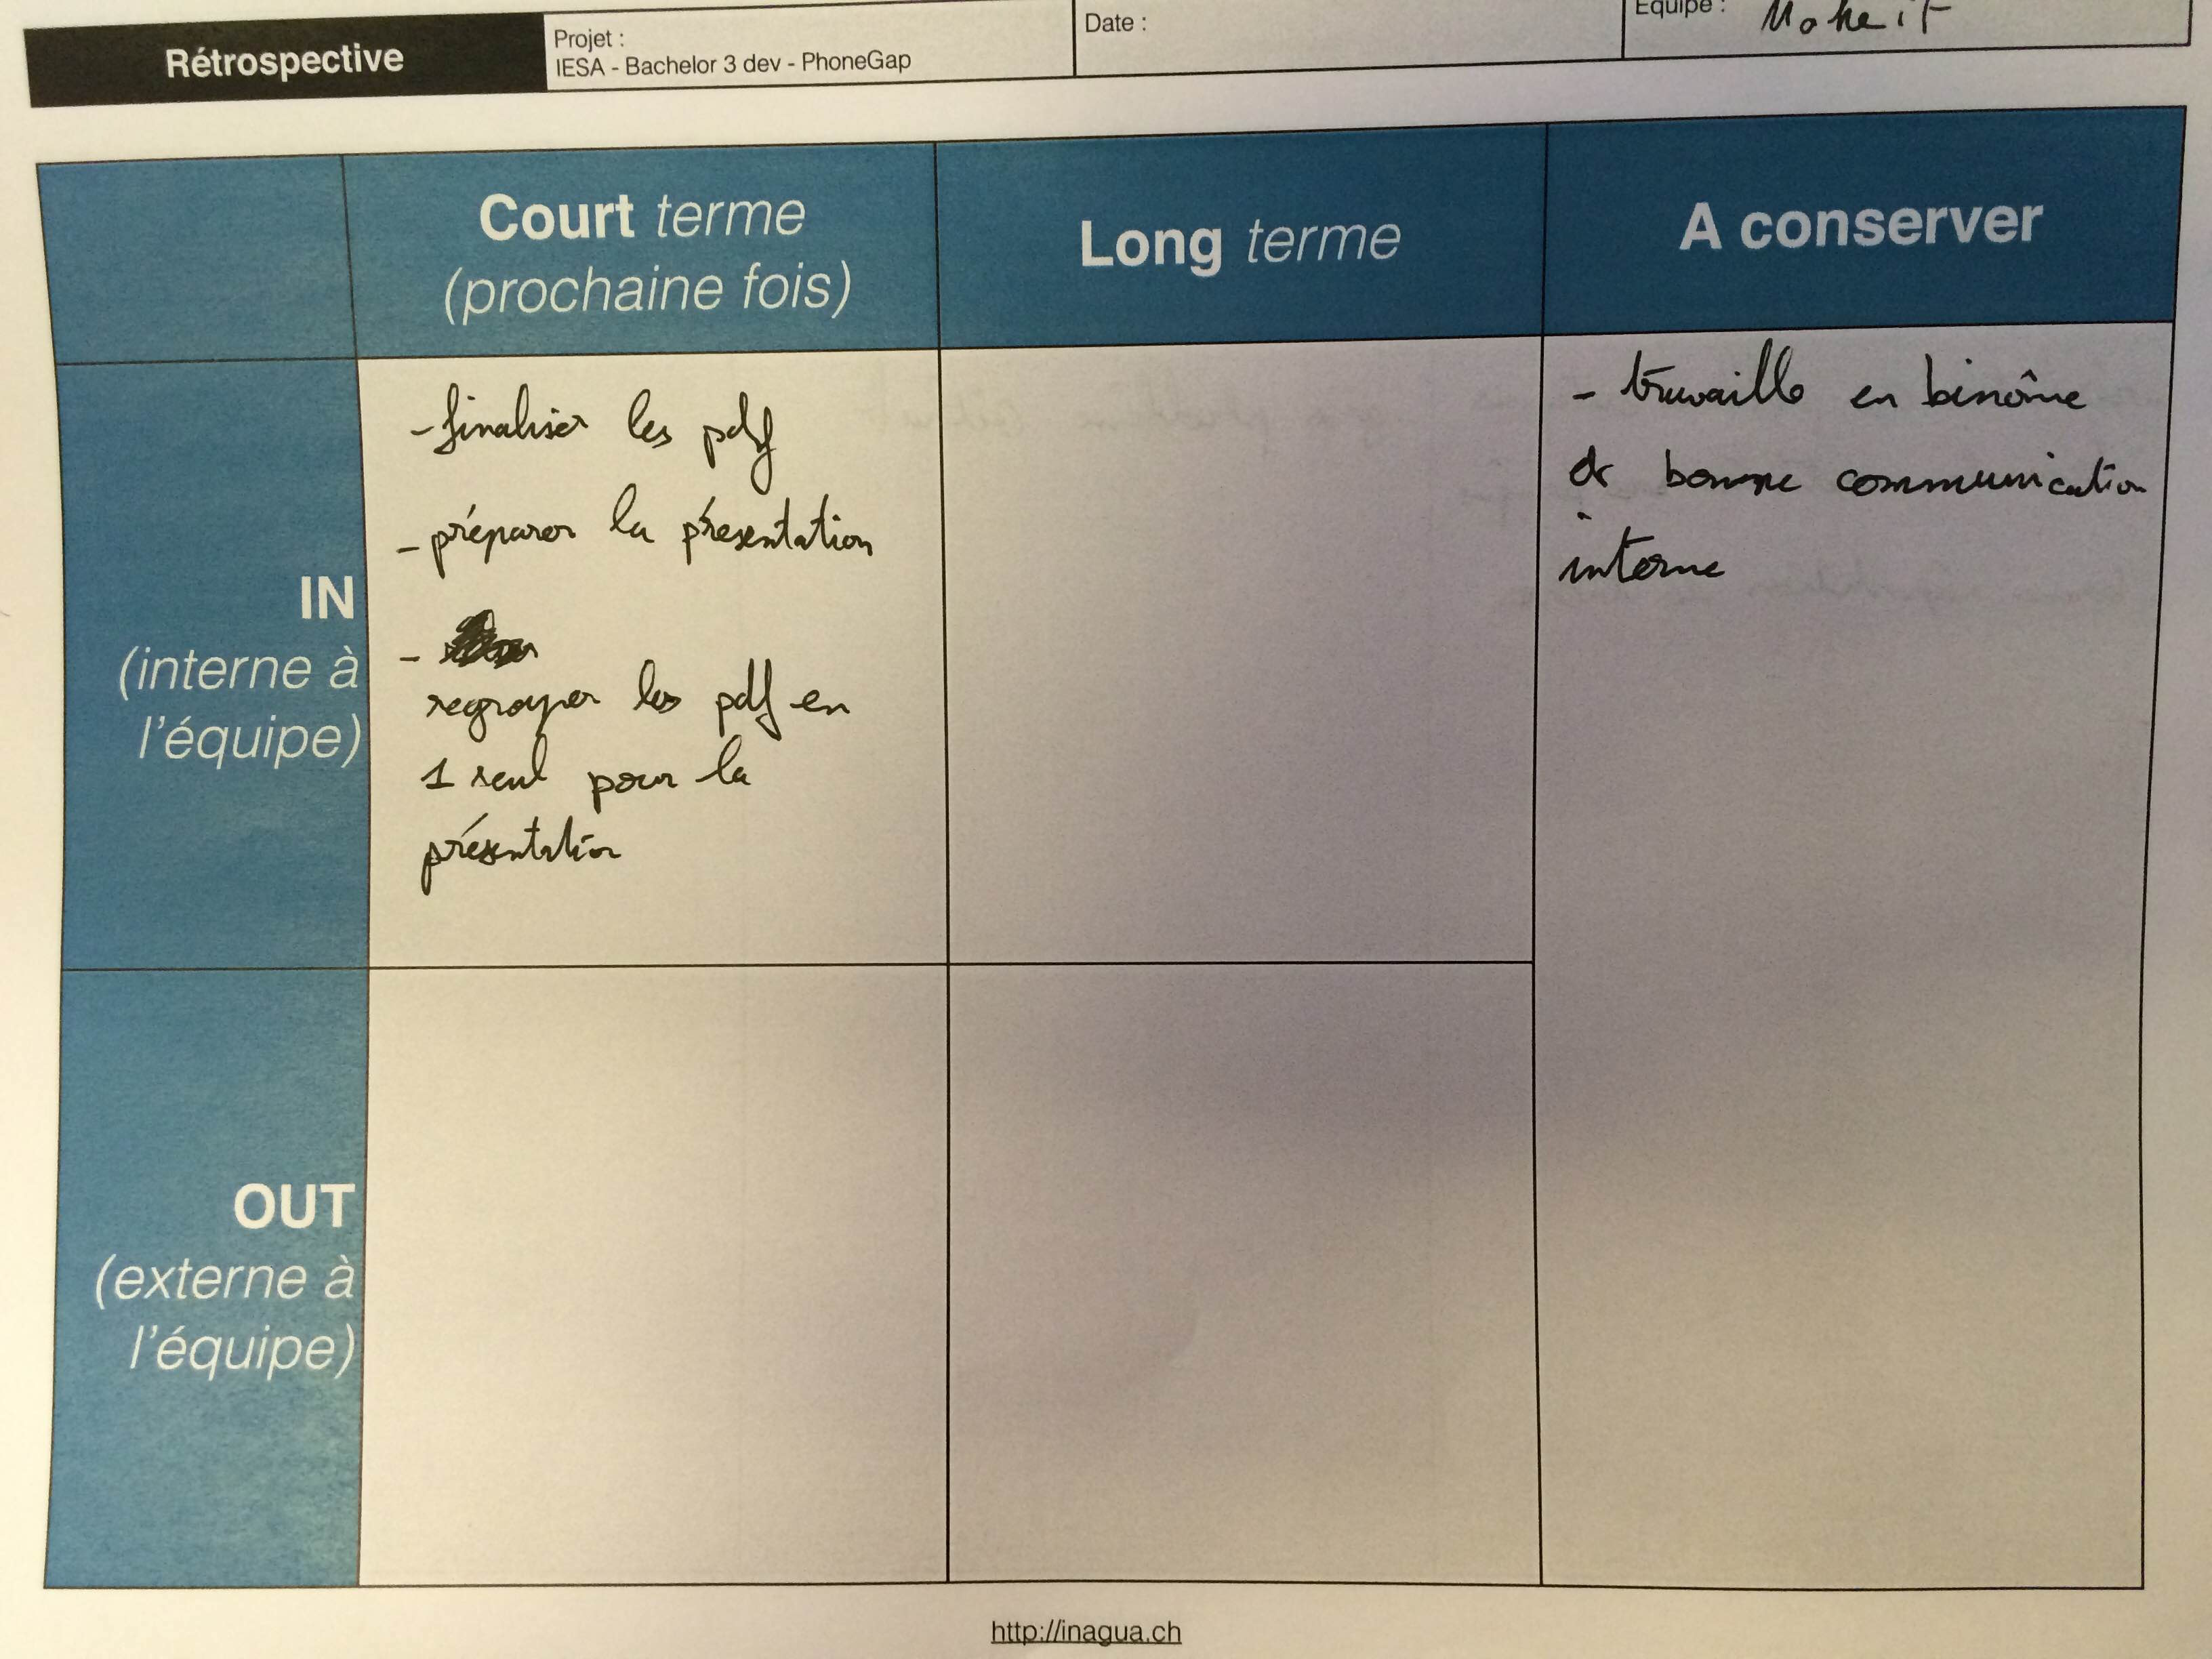 Rétrospective
Projet :
IESA - Bachelor 3 dev - PhoneGap
Date :
Equipe : Make it
Court terme
(prochaine fois)
Long terme
A conserver
IN
(interne à
l'équipe)
- finaliser les pdf
- préparer la présentation
-
regrouper les pdf en
1 seul pour la
présentation
- travaille en binôme
& bonne communication
interne
OUT
(externe à
l'équipe)
http://inagua.ch